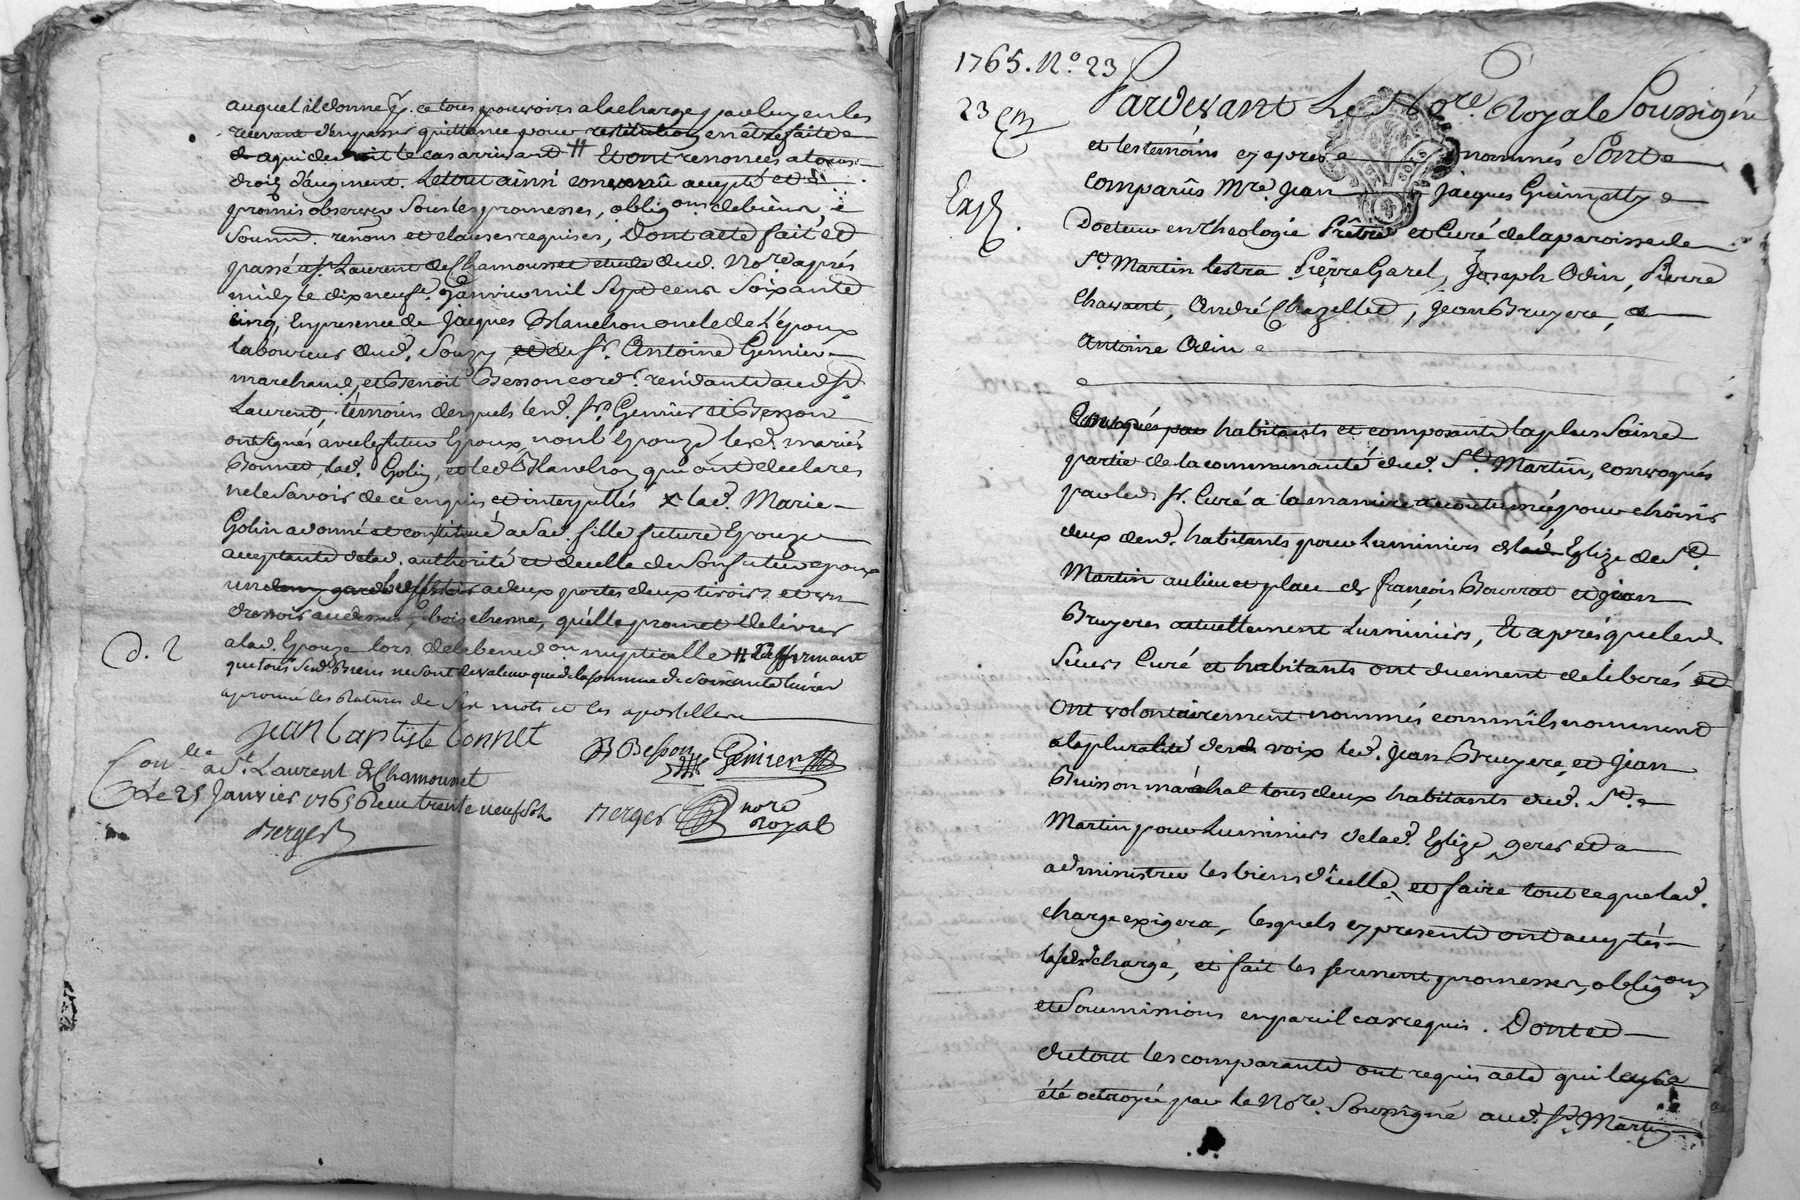 auquel il donne pr. ce tous pouvoirs a la charge par luy en les
recevant d'en passer quittance pour restitution en être faite
a qui de droit le cas arrivant # Et ont renoncés a tous
droits d'augment. Le tout ainsi convenu accepté et
promis observer sous les promesses, obligons de biens,
soumd. renons et clauses requises, Dont acte fait et
passé a St. Laurent de Chamousset etude dud. Nore. après
midy le dix neuf Janvier mil sept cent soixante
cinq, En presence de Jacques Blanchon oncle de l'époux
laboureur dud. Souzy et de sr. Antoine Genier
marchand, et Benoit Besson cordr. résidants aud. St.
Laurent, témoins desquels led. sr. Genier et Besson
ont signés avec le futur Epoux, non l'Epouze les d. mariés
Bonnet, lad. Golin, et led. Blanchon qui ont declarés
ne le savoir de ce enquis et interpellés x lad. Marie
Golin a donné et constitué a sad. fille future Epouze
acceptante de lad. authorité et de celle de son futur epoux
un a deux portes deux tiroirs et un
dressoir au dessus, bois chesne, qu'elle promet delivrer
a lad. Epouze lors de la benedon. nuptialle # Affirmant
que tous sesd. Biens ne sont de valeur que de la somme de soixante livres
aprouvé les ratures de six mots et les apostilles
D. 2
jean baptiste bonnet
B Besson Genier
Conlle. a St. Laurent de Chamousset
Le 25 Janvier 1765 Reçu trente neuf sols
Berger
Berger nore royal
1765. No. 23
23 em
Exp.
Pardevant Le Nore. Royale Soussigné
et les temoins cy apres nommés Sont
comparûs Mre. Jean Jacques Guimetty
Docteur en Theologie Prêtre et Curé de la paroisse de
St. Martin Lestra Pierre Garel, Joseph Odin, Pierre
Chavant, André Chazelles, Jean Bruyere, a
Antoine Odin
Convoqués par habitants et composants la plus saine
partie de la communauté dud. St. Martin, convoqués
par led. sr. Curé a la maniere accoutumée pour choisir
deux desd. habitants pour Luminiers de lad. Eglize de St.
Martin au lieu et place de françois Bourrat et jean
Bruyeres actuellement Luminiers, Et après que lesd.
Sieurs Curé et habitants ont duement deliberés et
Ont volontairement nommés comm'ils nomment
a la pluralité desd. voix led. Jean Bruyere, et Jean
Buisson maréchal tous deux habitants dud. St.
Martin pour Luminiers de lad. Eglize, gerer et
administrer les biens d'icelle, et faire tout ce que lad.
charge exigera, lesquels cy presents ont acceptés
lasusd. charge, et fait les serment promesses, obligons
et soumissions en pareil cas requis. Dont et
du tout les comparants ont requis acte qui leur a
été octroyé par le Nore. Soussigné aud. St. Martin